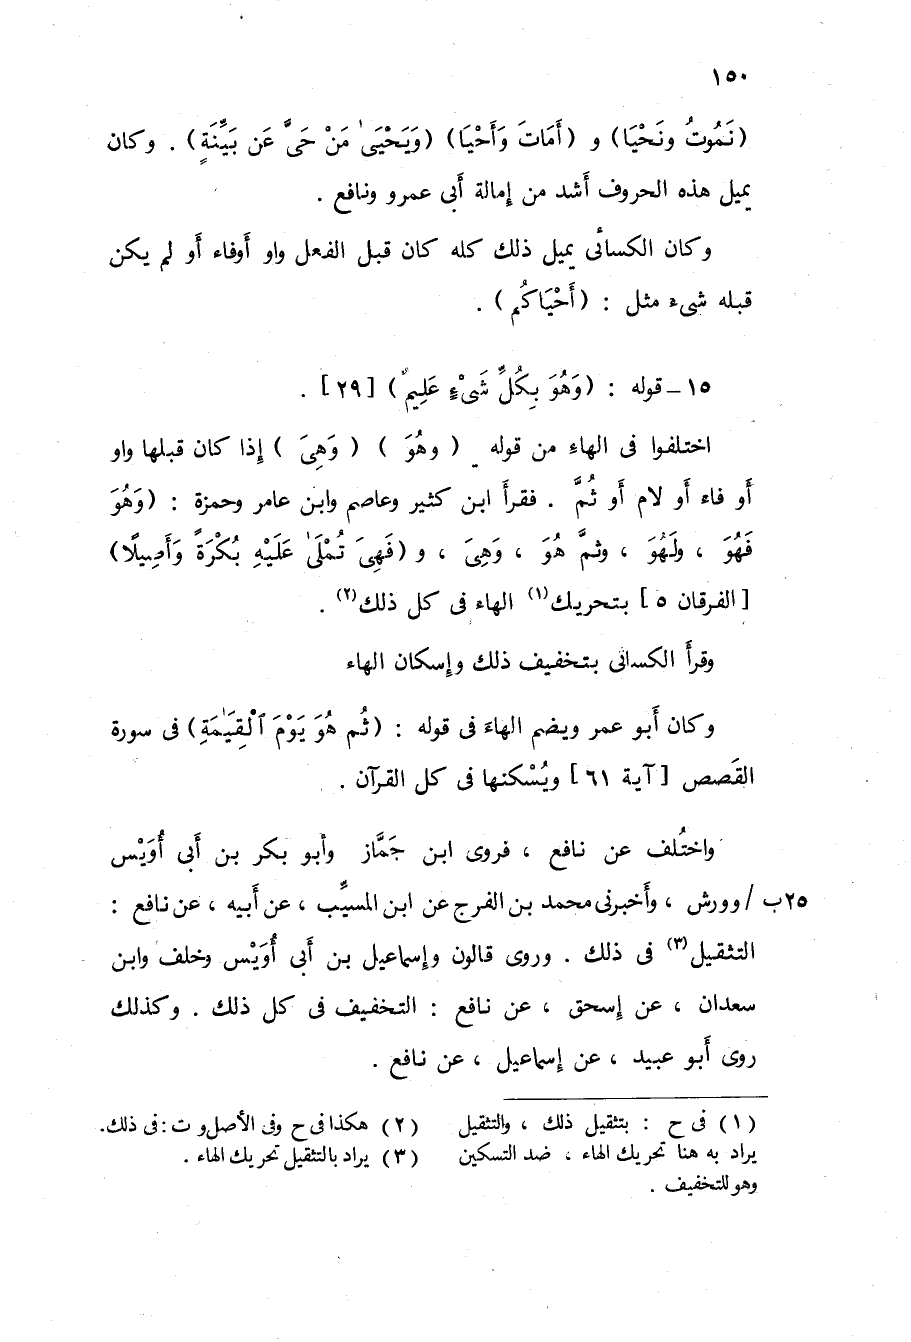 ١٥٠
(نَمُوتُ ونَحْيَا) و (أَمَاتَ وَأَحْيَا) (وَيَحْيَىٰ مَنْ حَىَّ عَن بَيِّنَةٍ) . وكان
يميل هذه الحروف أشد من إمالة أبى عمرو ونافع .
وكان الكسائى يميل ذلك كله كان قبل الفعل واو أوفاء أو لم يكن
قبله شىء مثل : (أَحْيَاكُم) .
١٥ــ قوله : (وَهُوَ بِكُلِّ شَىْءٍ عَلِيمٌ) [٢٩] .
اختلفوا فى الهاءِ من قوله ( وهُوَ ) ( وَهِىَ ) إذا كان قبلها واو
أو فاء أو لام أو ثُمَّ . فقرأَ ابن كثير وعاصم وابن عامر وحمزة : (وَهُوَ
فَهُوَ ، ولَهُوَ ، وثمَّ هُوَ ، وَهِىَ ، و (فَهِىَ تُمْلَىٰ عَلَيْهِ بُكْرَةً وَأَصِيلًا)
[الفرقان ٥] بتحريك(١) الهاء فى كل ذلك(٢) .
وقرأَ الكسائى بتخفيف ذلك وإسكان الهاء
وكان أَبو عمر ويضم الهاءَ فى قوله : (ثُم هُوَ يَوْمَ ٱلْقِيَٰمَةِ) فى سورة
القَصص [آية ٦١] ويُسْكنها فى كل القرآن .
واختُلف عن نافع ، فروى ابن جَمَّاز وأبو بكر بن أَبى أُوَيْس
٢٥ب / وورش ، وأَخبرنى محمد بن الفرج عن ابن المسيَّب ، عن أَبيه ، عن نافع :
التثقيل(٣) فى ذلك . وروى قالون وإسماعيل بن أَبى أُوَيْس وخلف وابن
سعدان ، عن إسحق ، عن نافع : التخفيف فى كل ذلك . وكذلك
روى أَبو عبيد ، عن إسماعيل ، عن نافع .
(١) فى ح : بتثقيل ذلك ، والتثقيل
يراد به هنا تحريك الهاء ، ضد التسكين
وهو للتخفيف .
(٢) هكذا فى ح وفى الأصل و ت : فى ذلك.
(٣) يراد بالتثقيل تحريك الهاء .